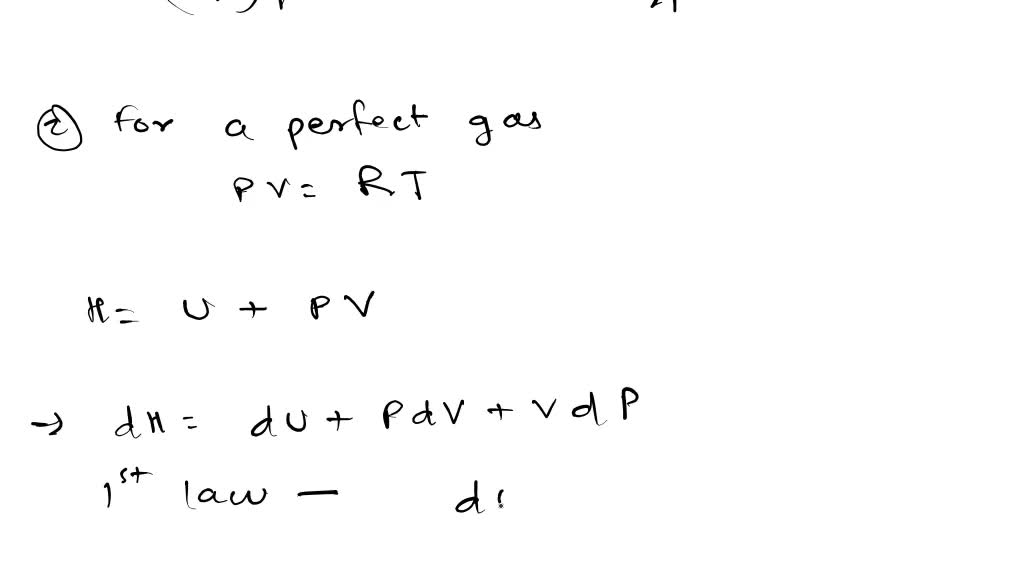 ② for a perfect gas
PV = RT
H = U + PV
→ dH = dU + PdV + VdP
1st law — d